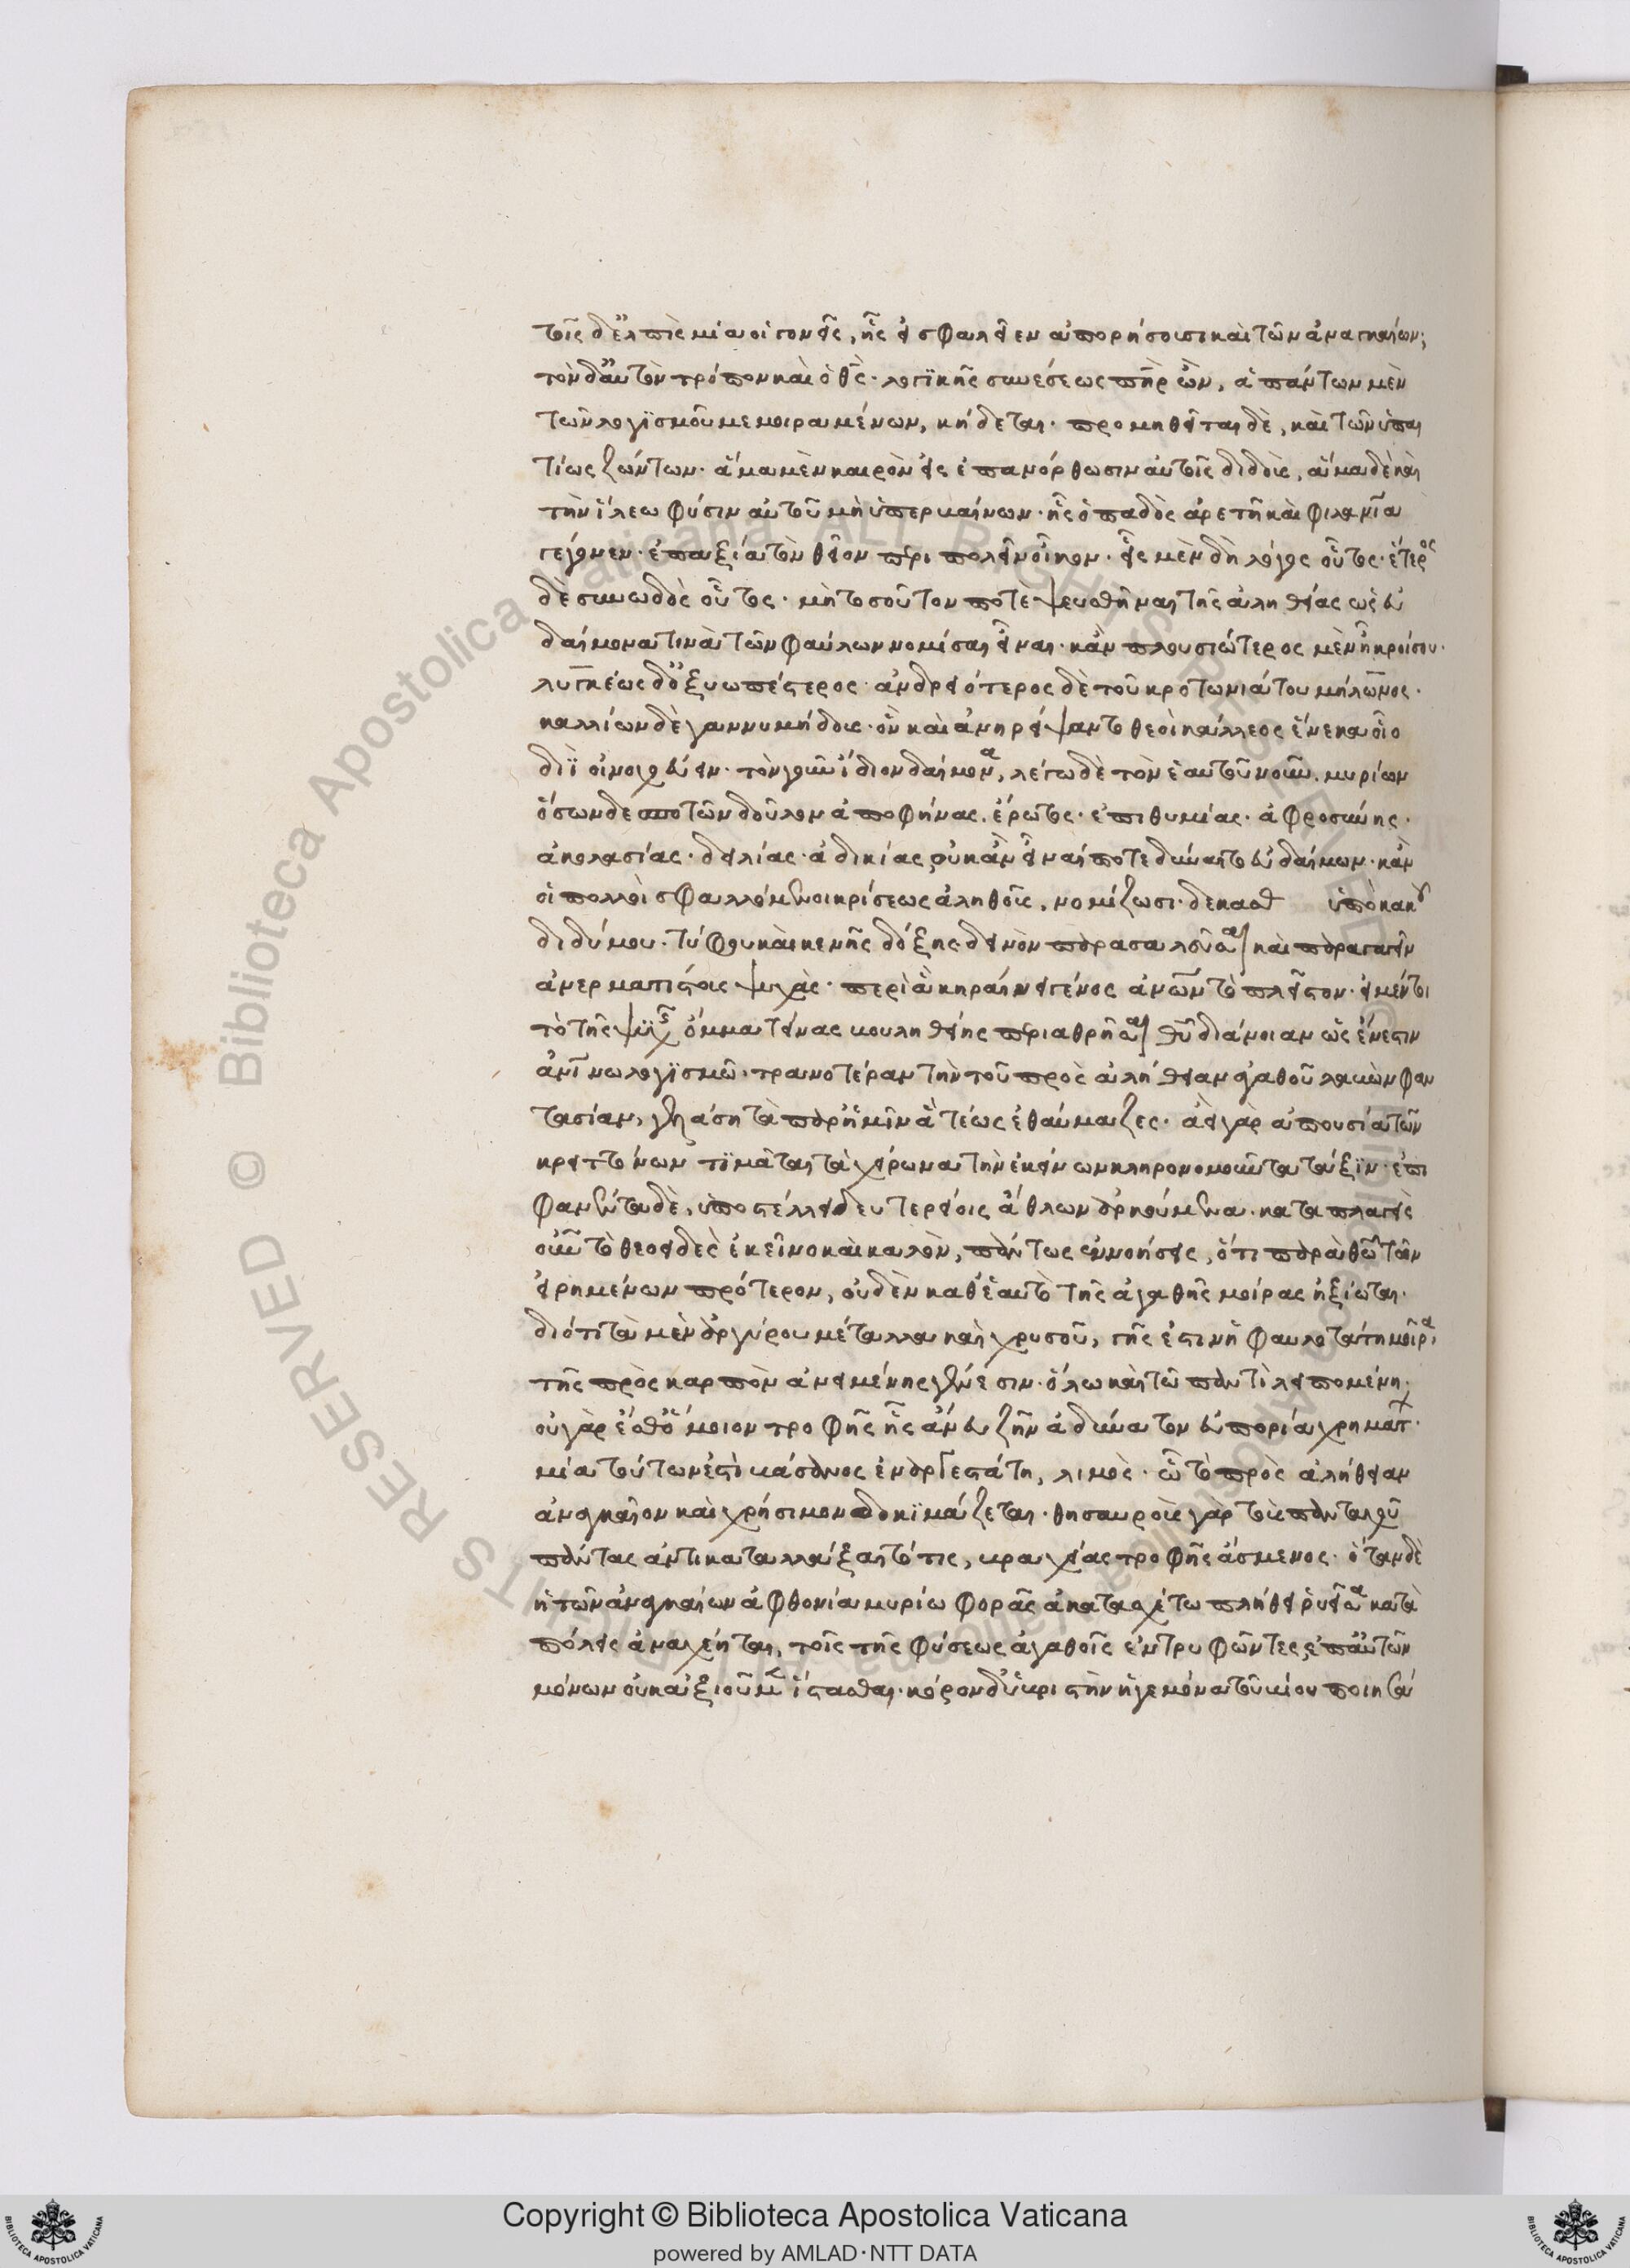 τοῖς δ' ἐλπὶς μία οἱ γονεῖς, ἧς εἰ σφαλεῖεν ἀπορήσουσι καὶ τῶν ἀναγκαίων;
τὸν δ' αὐτὸν τρόπον καὶ ὁ θς. λογϊκῆς συνέσεως πηρ ὢν, ἁπάντων μὲν
τῶν λογϊσμοῦ μεμοιραμένων, κήδεται. προμηθεῖται δὲ, καὶ τῶν ὑπαι
τίως ζώντων. ἅμα μὲν καιρὸν εἰς ἐπανόρθωσιν αὐτοῖς διδοὺς, ἅμα δὲ καὶ
τὴν ἵλεω φύσιν αὐτοῦ μὴ ὑπερβαίνων. ἧς ὀπαδὸς ἀρετὴ καὶ φιλανία
γέγονεν. ἐπαξία τὸν θεῖον περιπολεῖν οἶκον. εἷς μὲν δὴ λόγος οὗτος. ἕτερος
δὲ συνωδὸς οὗτος. μὴ τοσοῦτον ποτὲ ψευσθῆναι τῆς ἀληθείας ὡς εὐ
δαίμονα τινὰ τῶν φαύλων νομίσαι εἶναι. κἂν πλουσιώτερος μὲν ᾖ κροίσου.
λυγκέως δ' ὀξυωπέστερος. ἀνδρειότερος δὲ τοῦ κροτωνιάτου μήλωνος.
καλλίων δὲ γαννυμήδους. ὃν καὶ ἀνηρείψαντο θεοὶ κάλλεος εἵνεκα οἷο
διῒ οἰνοχοεύειν. τὸν γοῦν ἴδιον δαίμονα, λέγω δὲ τὸν ἑαυτοῦ νοῦν. μυρίων
ὅσων δεσποτῶν δοῦλον ἀποφήνας. ἔρωτος. ἐπιθυμίας. ἀφροσύνης.
ἀκολασίας. δειλίας. ἀδικίας, οὐκ ἂν εἶναί ποτε δύναιτο εὐδαίμων. κἂν
οἱ πολλοὶ σφαλλόμενοι κρίσεως ἀληθοῦς, νομίζωσι. δεκασθ ὑπὸ κακοῦ
διδύμου. τύφου καὶ κενῆς δόξης. δεινὸν παρασαλεῦσαι καὶ παραγαγεῖν
ἀνερματίστους ψυχὰς. περὶ ἃ κηραίνει γένος ἀνων τὸ πλεῖστον. εἰ μέντοι
τὸ τῆς ψυχῆς ὄμμα τείνας βουληθείης περιαθρῆσαι θυ διάνοιαν ὡς ἔνεστιν
ἀνίνω λογϊσμῶ. τρανοτέραν τὴν τοῦ πρὸς ἀλήθειαν ἀγαθοῦ λαβὼν φαν
τασίαν, γελάση τὰ παρ' ἡμῖν ἃ τέως ἐθαύμαζες. ἀεὶ γὰρ ἀπουσία τῶν
κρειττόνων τϊμᾶται τὰ χείρωνα τὴν ἐκείνων κληρονομοῦντα τάξϊν. ἐπι
φανέντα δὲ, ὑποστέλλει δευτερείοις ἄθλων ἀρκούμενα. καταπλαγεὶς
οὖν τὸ θεοειδὲς ἐκεῖνο καὶ καλὸν, πάντως ἐννοήσεις, ὅτι παρὰ θῶ τῶν
εἰρημένων πρότερον, οὐδὲν καθ' ἑαυτὸ τῆς ἀγαθῆς μοίρας ἠξίωται.
διότι τὰ μὲν ἀργύρου μέταλλα καὶ χρυσοῦ, γῆς ἐστιν ἡ φαυλοτάτη μοῖρα,
τῆς πρὸς καρπὸν ἀνειμένης γένεσιν. ὅλω καὶ τῶ παντὶ λειπομένη.
οὐ γάρ ἐσθ' ὅμοιον τροφῆς ἧς ἄνευ ζῆν ἀδύνατον εὐπορία χρημάτ.
μία τούτων ἐστὶ βάσανος ἐναργεστάτη, λιμὸς. ὧ τὸ πρὸς ἀλήθειαν
ἀναγκαῖον καὶ χρήσιμον δοκϊμάζεται. θησαυροὺς γὰρ τοὺς πανταχοῦ
πάντας ἀντικαταλλάξαιτό τις, βραχείας τροφῆς ἄσμενος. ὅταν δὲ
ἡ τῶν ἀναγκαίων ἀφθονία μυρίω φορᾶς ἀκατασχέτω πλήθει ῥυεῖσα κατὰ
πόλεις ἀναχέηται, τοῖς τῆς φύσεως ἀγαθοῖς ἐντρυφῶντες, ἐπ' αὐτῶν
μόνων οὐκ ἀξιοῦμεν ἵστασθαι. κόρον δ' ὑβριστὴν ἡγεμόνα τοῦ βίου ποιητά